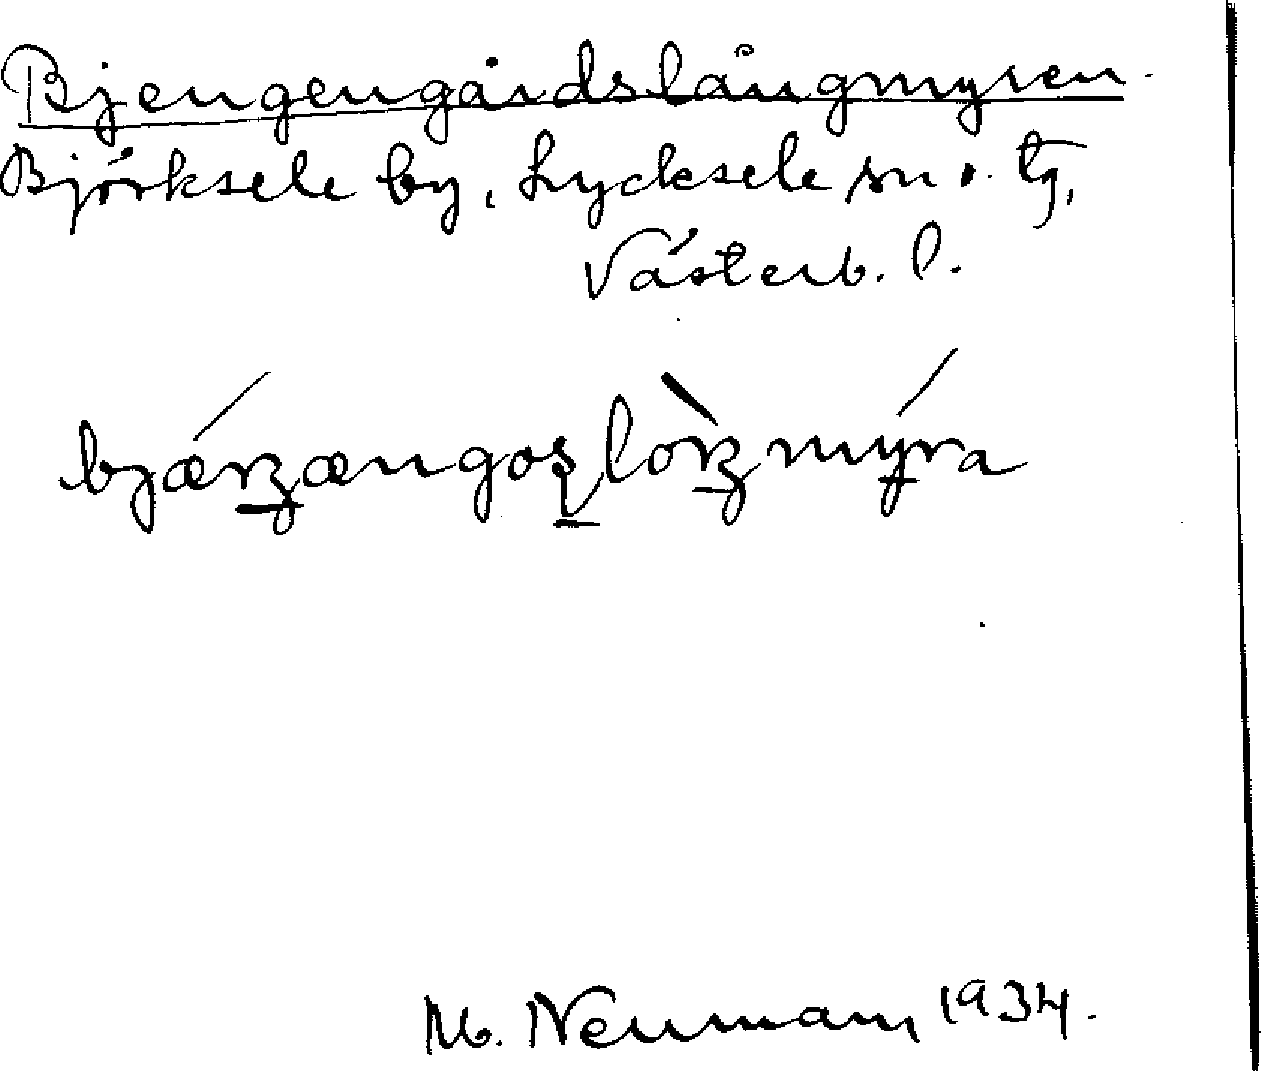 Bjengengårdslångmyren.
Björksele by, Lycksele sn o. tg,
Västerb. l.
bjæŋængoșlòŋmýra
M. Neuman 1934.